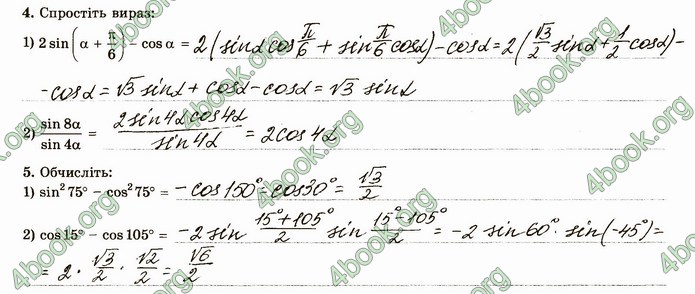 4. Спростіть вираз:
1) 2 sin(α + π/6) − cos α = 2(sinα cos π/6 + sin π/6 cosα) − cosα = 2(√3/2 sinα + 1/2 cosα) −
− cosα = √3 sinα + cosα − cosα = √3 sinα
2) sin 8α / sin 4α = 2sin4α cos4α / sin4α = 2cos4α
5. Обчисліть:
1) sin²75° − cos²75° = −cos150° = cos30° = √3/2
2) cos 15° − cos 105° = −2 sin (15°+105°)/2 sin (15°−105°)/2 = −2 sin60° · sin(−45°) =
= 2 · √3/2 · √2/2 = √6/2
4book.org